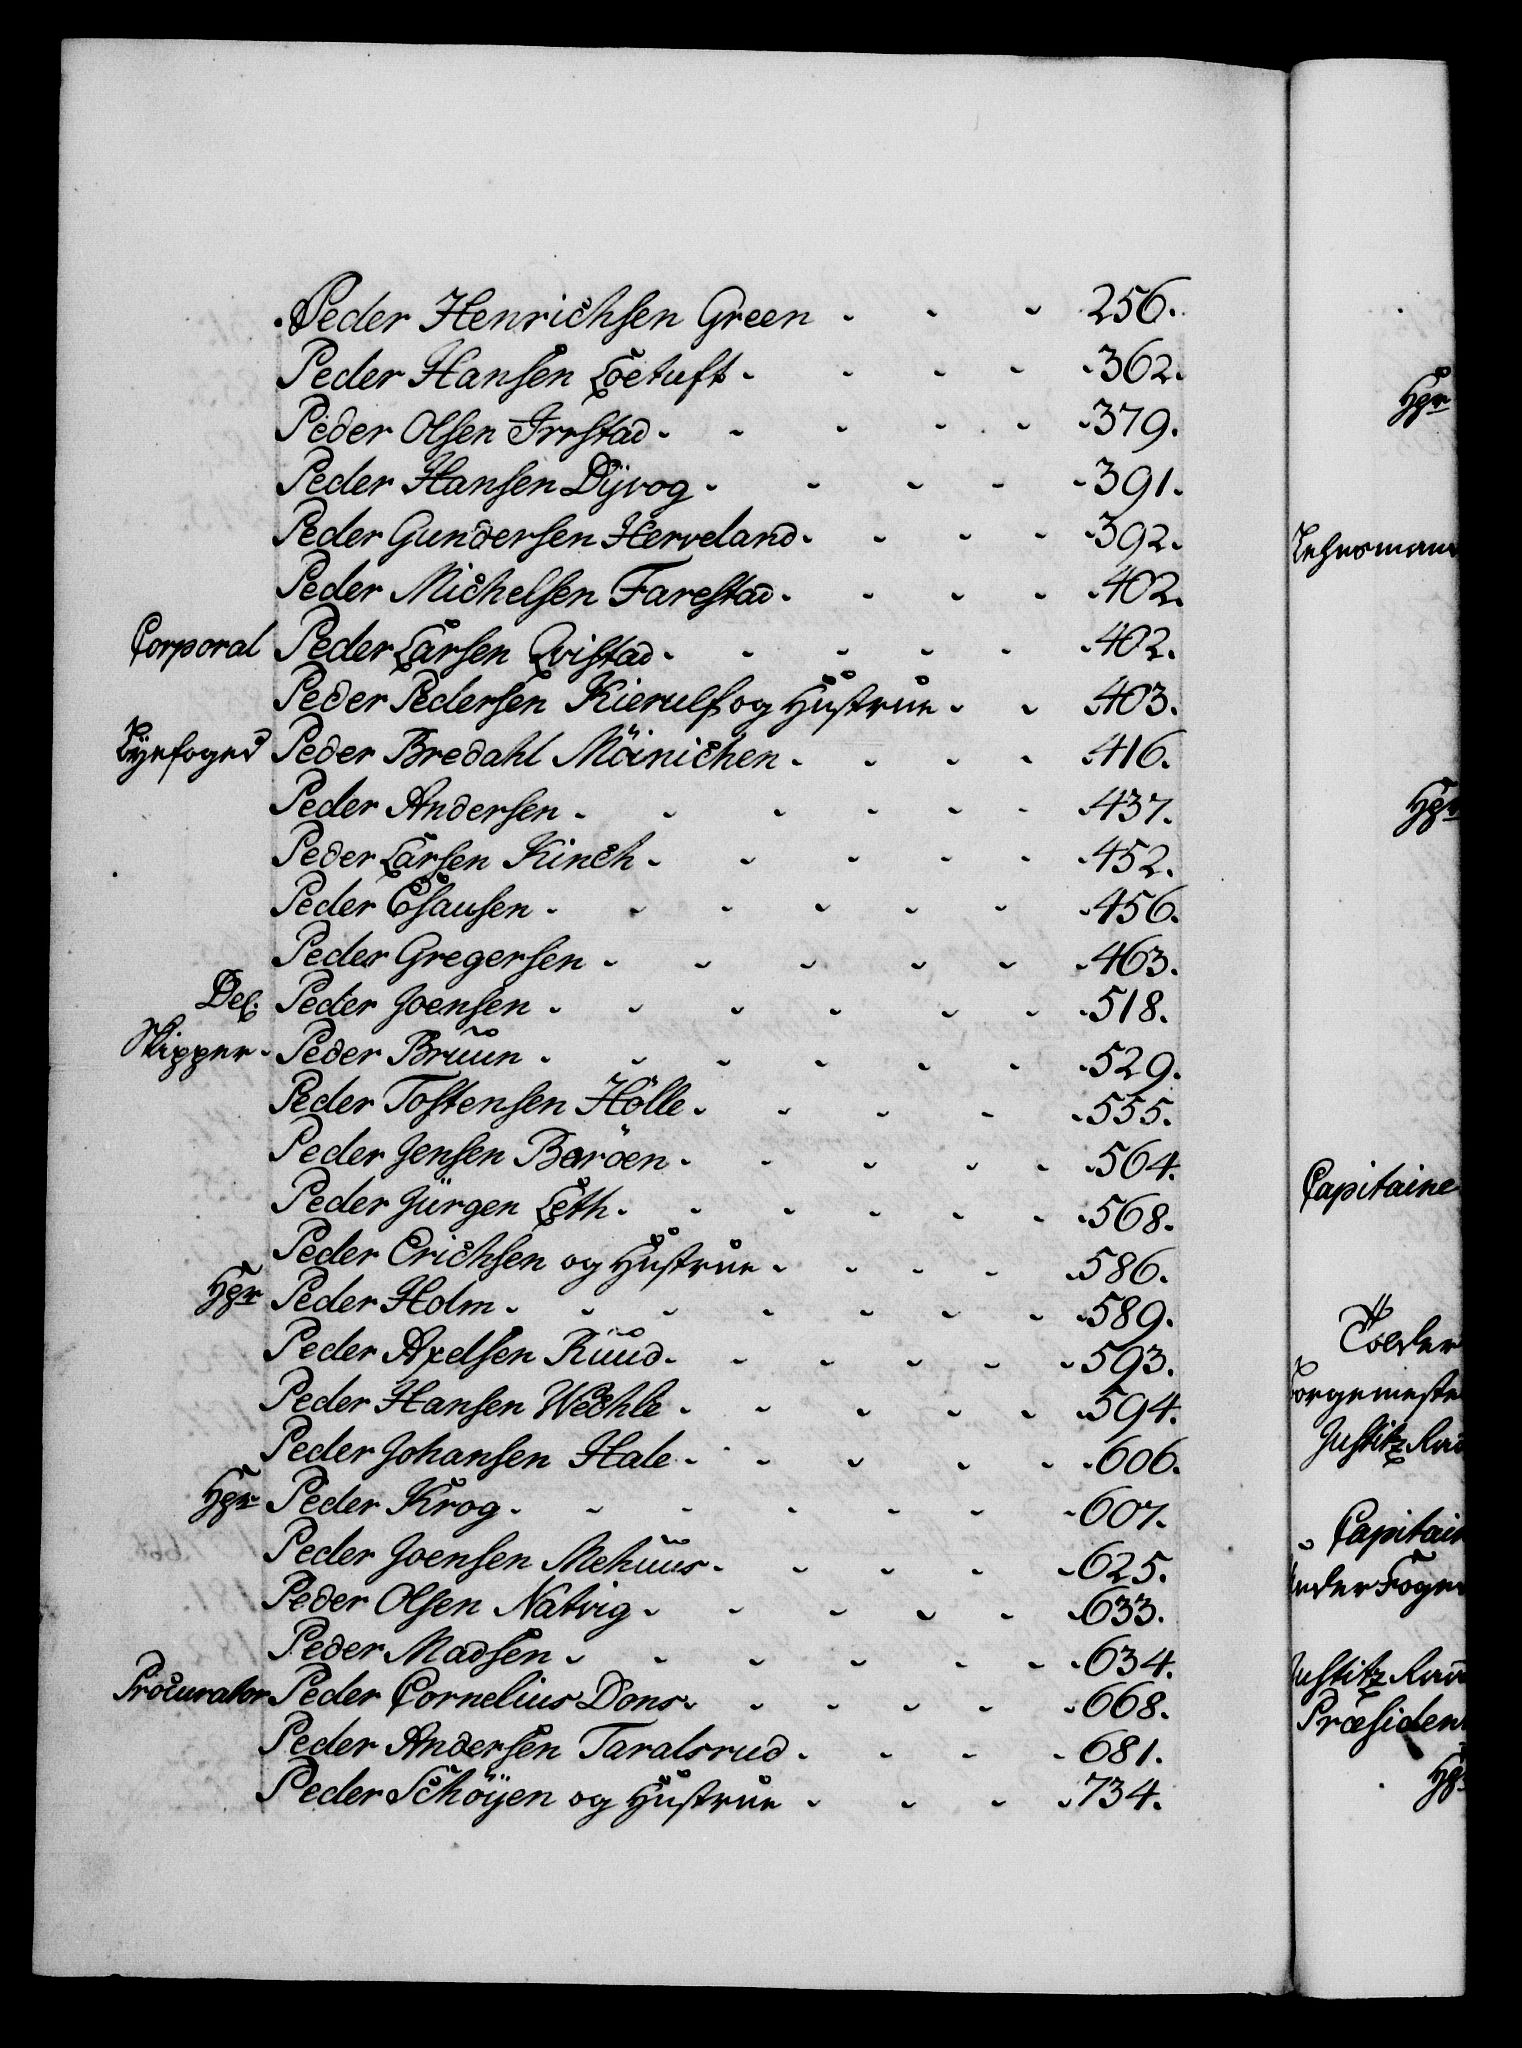 Peder Henrichsen Green - - - 256.
Peder Hansen Loetuft - - - - 362.
Peder Olsen Irrstad - - - - 379.
Peder Hansen Dÿvog - - - - 391.
Peder Gundersen Herveland - - - - 392.
Peder Michelsen Farestad - - - - 402.
Corporal Peder Larsen Qvistad - - - - 402.
Peder Pedersen Kierulf og Hustrue - - 403.
Byefoged Peder Bredahl Möinichen - - - - 416.
Peder Andersen - - - - - - 437.
Peder Larsen Kinch - - - - - 452.
Peder Esausen - - - - - - 456.
Peder Gregersen - - - - - 463.
Peder Joensen - - - - - - 518.
Skipper Peder Bruun - - - - - - 529.
Peder Tostensen Hölle - - - - 555.
Peder Jensen Boröen - - - - - 564.
Peder Jürgen Leth - - - - - - 568.
Peder Erichsen og Hustrue - - - - 586.
Hgr Peder Holm - - - - - - - 589.
Peder Axelsen Ruud - - - - - - 593.
Peder Hansen Wechle - - - - - 594.
Peder Johansen Hale - - - - - 606.
Hgr Peder Krog - - - - - - 607.
Peder Joensen Mehuus - - - - - 625.
Peder Olsen Natvig - - - - - 633.
Peder Madsen - - - - - - 634.
Procurator Peder Cornelius Dons - - - - - 668.
Peder Andersen Taralsrud - - - - 681.
Peder Schöÿen og Hustrue - - - - 734.
Hgr
Hgr
Capitaine
Justitz Raa
Capitain
Under Foge
Justitz Raa
Præsiden